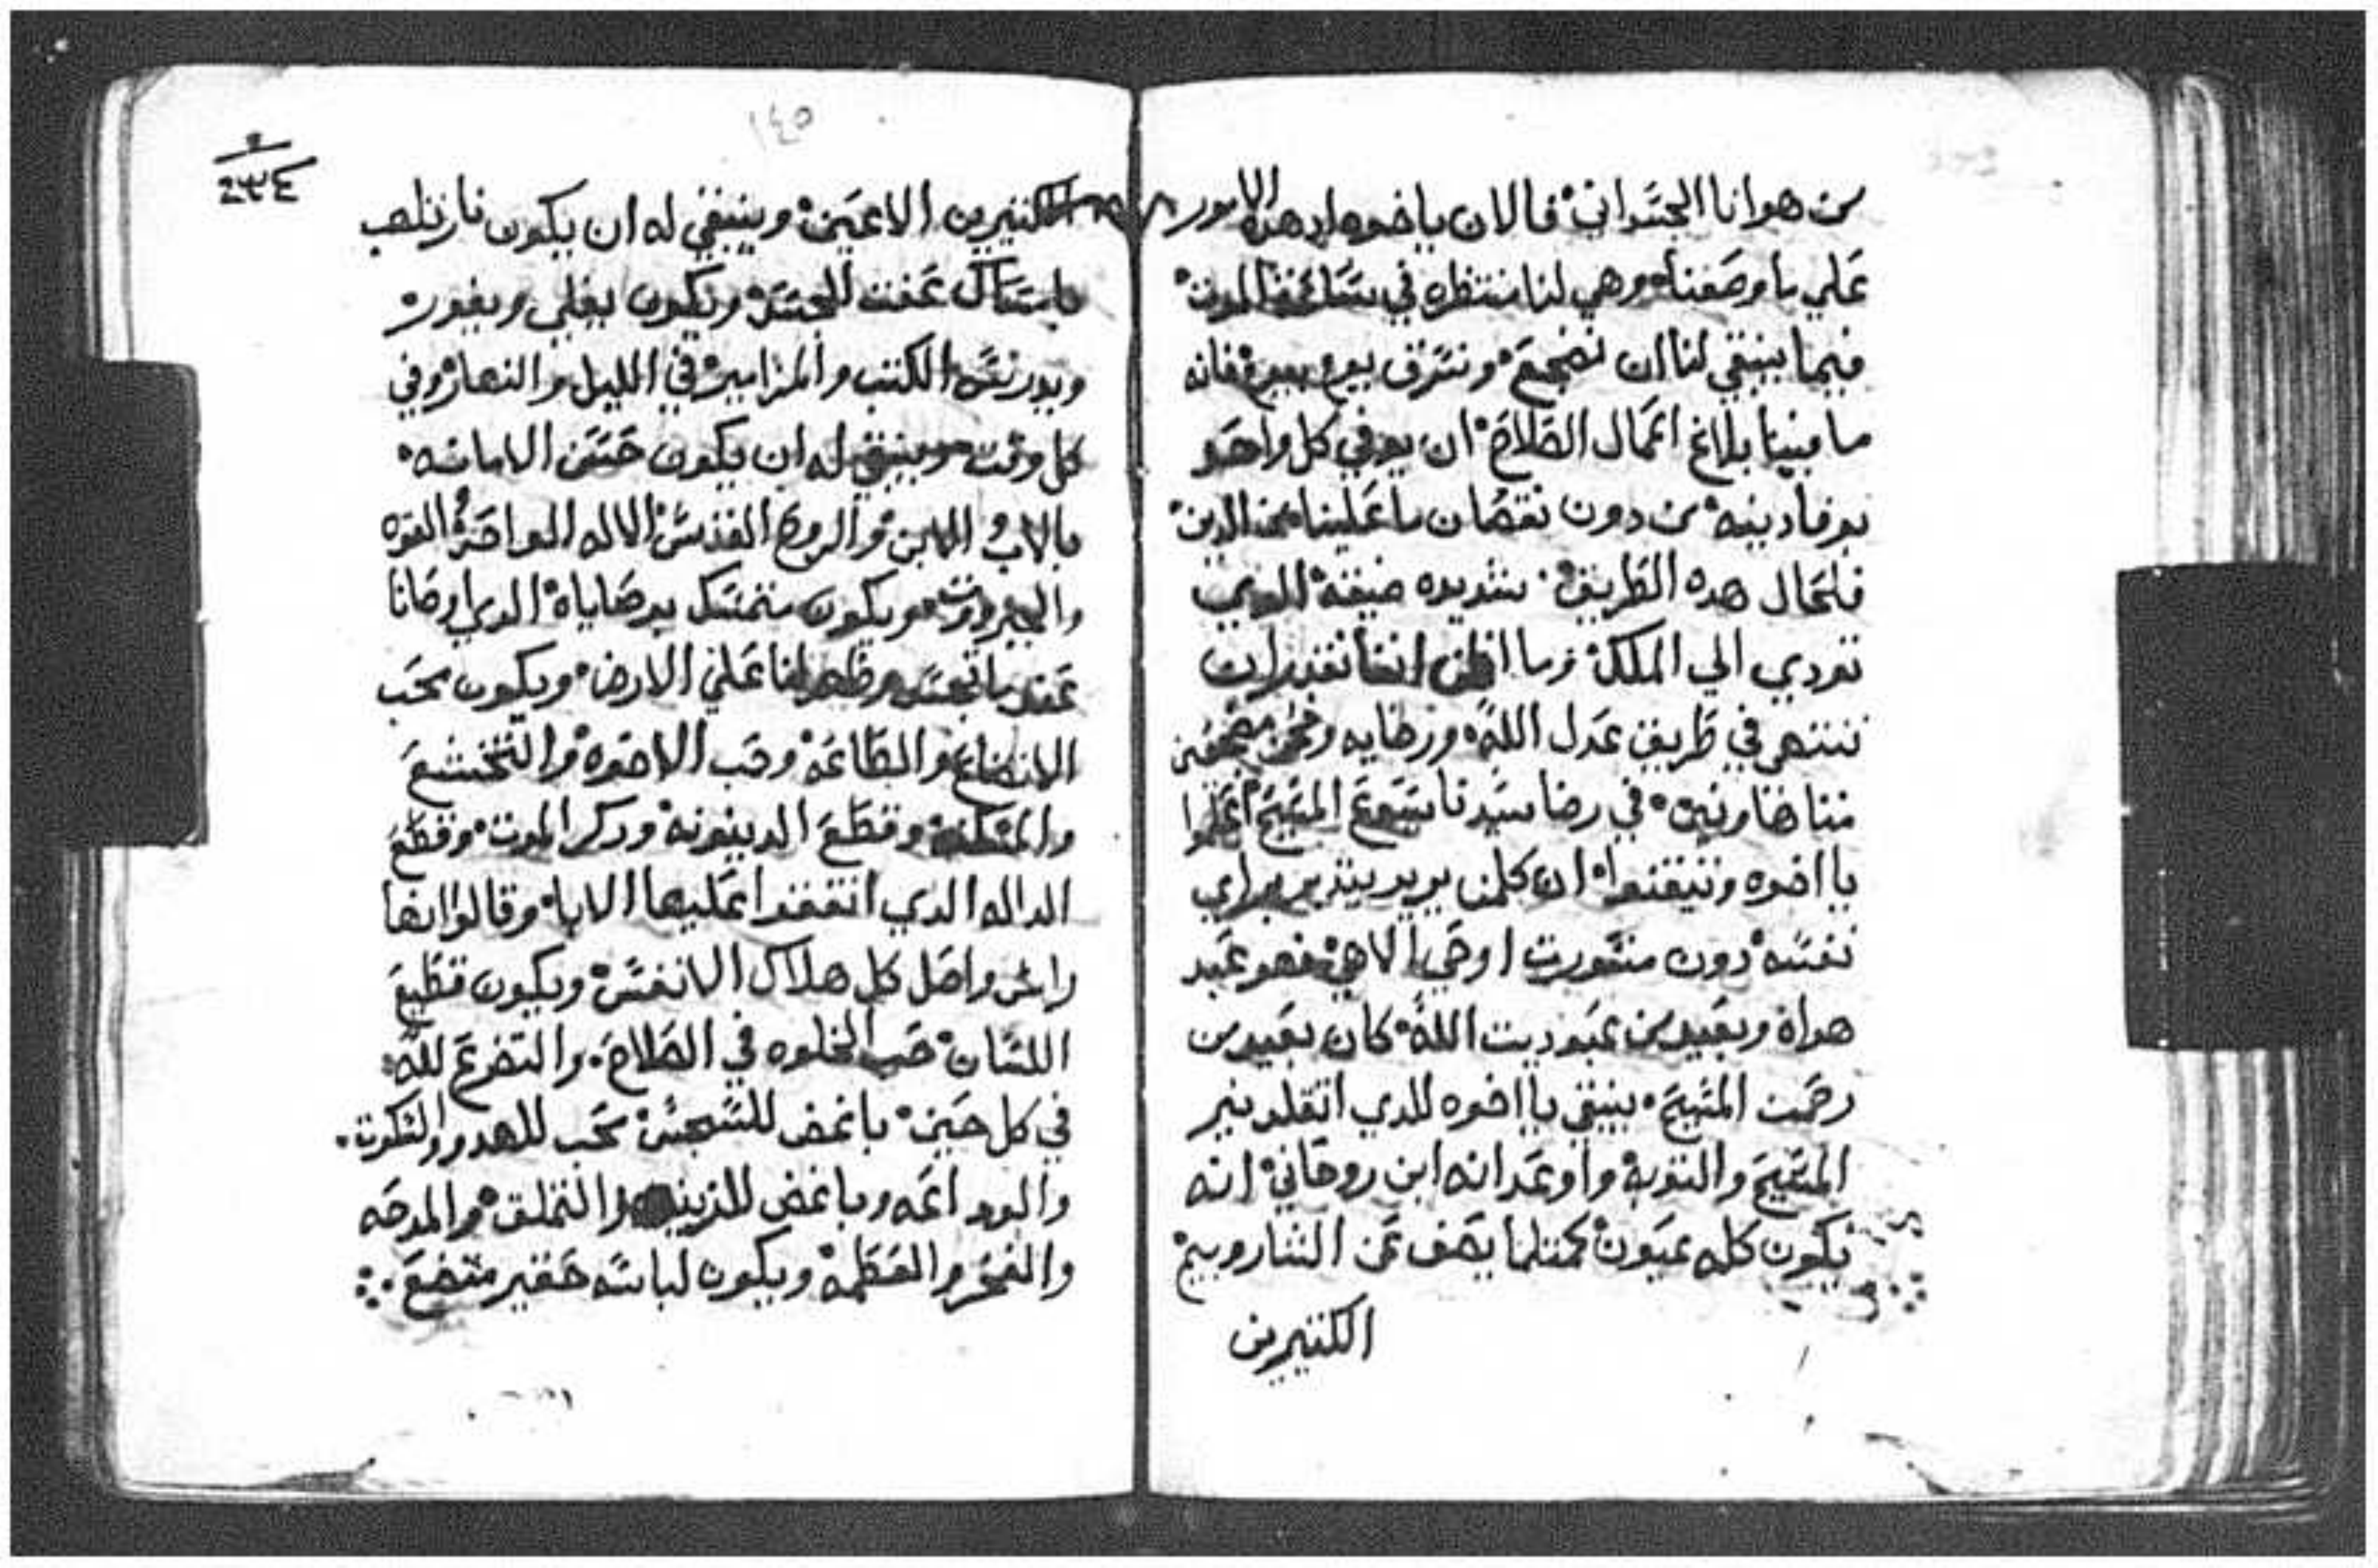 من هوانا الجسداني فالان ياخوه ادهده الامور
علي ما وصفناه وهي لنا منتظره في ساعة الموت
فيما ينبغي لنا ان نضجع ونسوف يوم بيوم فانه
ما فينا بلاغ اعمال الصلاح ان يوفي كل واحد
يوفا دينه من دون نقصان ما علينا من الدين
فلحال هده الطريق شديده ضيقه الدي
تودي الي الملك وما اظن اننا نقدر ان
ننتهي في طريق عدل الله ورضايه ونحن مضجعين
متناضاونين في رضا سيدنا يسوع المسيح اعلموا
يا اخوه وتيقنوا ان كلمن يريد يتدبر براي
نفسه دون مشورت اوحي الاهي فهو عبد
هواه وبعيد من عبوديت الله كان بعيد من
رحمت المسيح ينبغي يا اخوه للدي اتقلد بنير
المسيح والتوبه واوعد انه ابن روحاني انه
يكون كله عيون كمتلما يصف عن الشاروبيم
الكتيرين
١٤٥
٢٣٤
الكتيرين الاعين وينبغي له ان يكون نار تلهب
ويكون يغلي ويفور
ويدرس الكتب والمزامير في الليل والنهار وفي
كل وقت وينبغي له ان يكون حسن الامانه
بالاب والابن والروح القدس الاله الواحد القوه
والجبروت ويكون متمسك بوصاياه الدي اوصانا
عند ما تجسد وظهر لنا علي الارض ويكون محب
الاتضاع والطاعه وحب الاخوه والتخشع
والمسكنه وقطع الدينونه ودكر الموت وقطع
الداله الدي اتفقوا عليها الابا وقالوا انها
راس واصل كل هلاك الانفس ويكون قطيع
اللسان حب الخلوه في الصلاه والتفرغ لله
في كل حين باغض للسجس محب للهدو والسكوت
والوداعه وباغض للزينه والتملق والمدحه
والفخر والعظمه ويكون لباسه حقير متضع